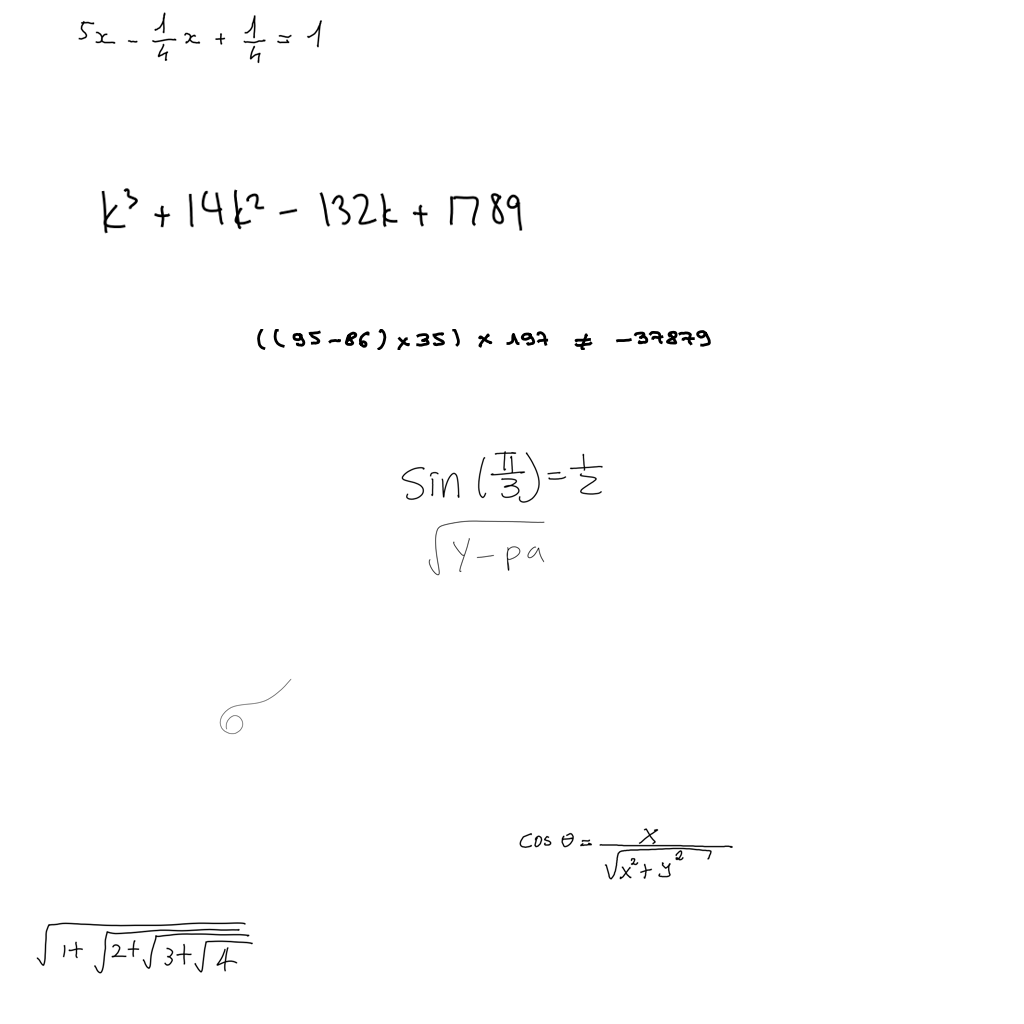 5x - 1/4 x + 1/4 = 1
k³ + 14k² - 132k + 1789
((95-86)×35) × 197 ≠ -37879
Sin (π/3) = 1/2
√(y-pa)
6
cos θ = x/√(x²+y²)
√(1+√(2+√(3+√4)))